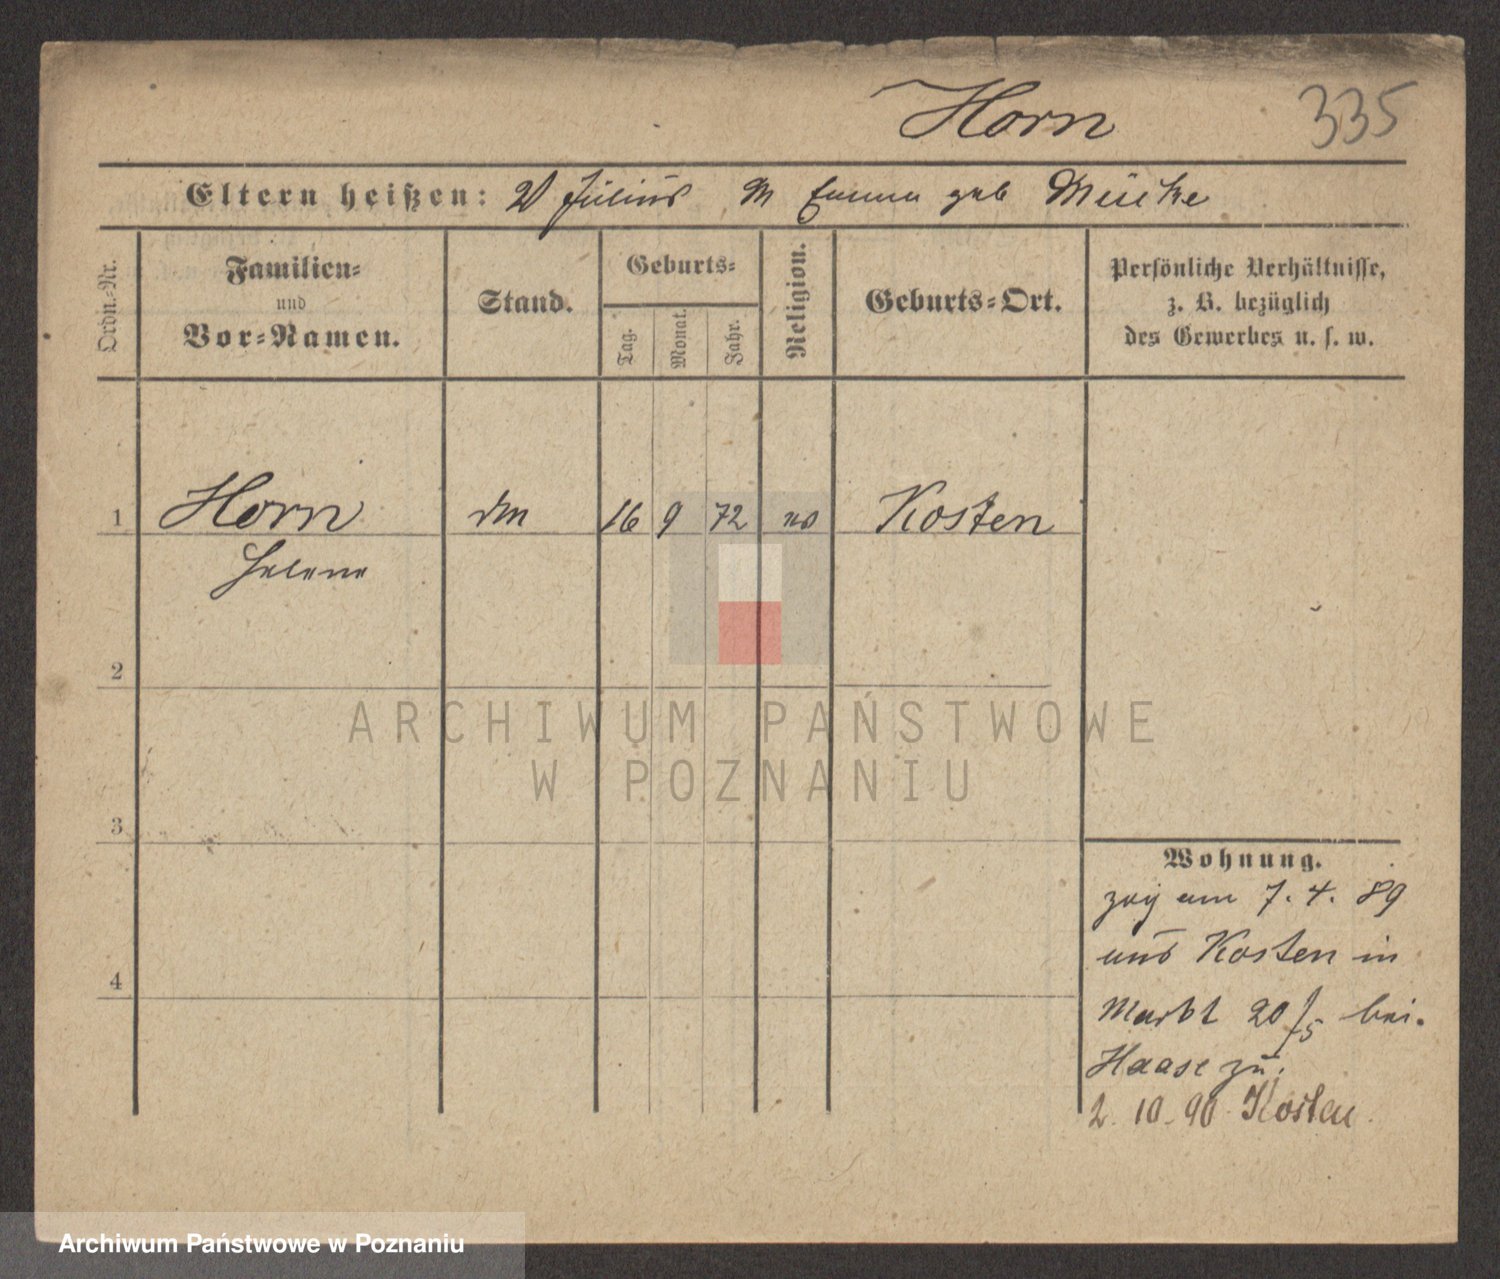 Horn 335
Eltern heißen: V Julius M Emma geb
Ordn.-Nr.
Familien-
und
Vor-Namen.
Stand.
Geburts-
Tag.
Monat.
Jahr.
Religion.
Geburts-Ort.
Persönliche Verhältnisse,
z. B. bezüglich
des Gewerbes u. s. w.
1 Horn 16 9 72 Kosten
Helene
2
3
4
ARCHIWUM PAŃSTWOWE
W POZNANIU
Wohnung.
zog am 7. 4. 89
aus Kosten in
Markt 20/5 bei
Haase zu.
2. 10. 90 Kosten
Archiwum Państwowe w Poznaniu